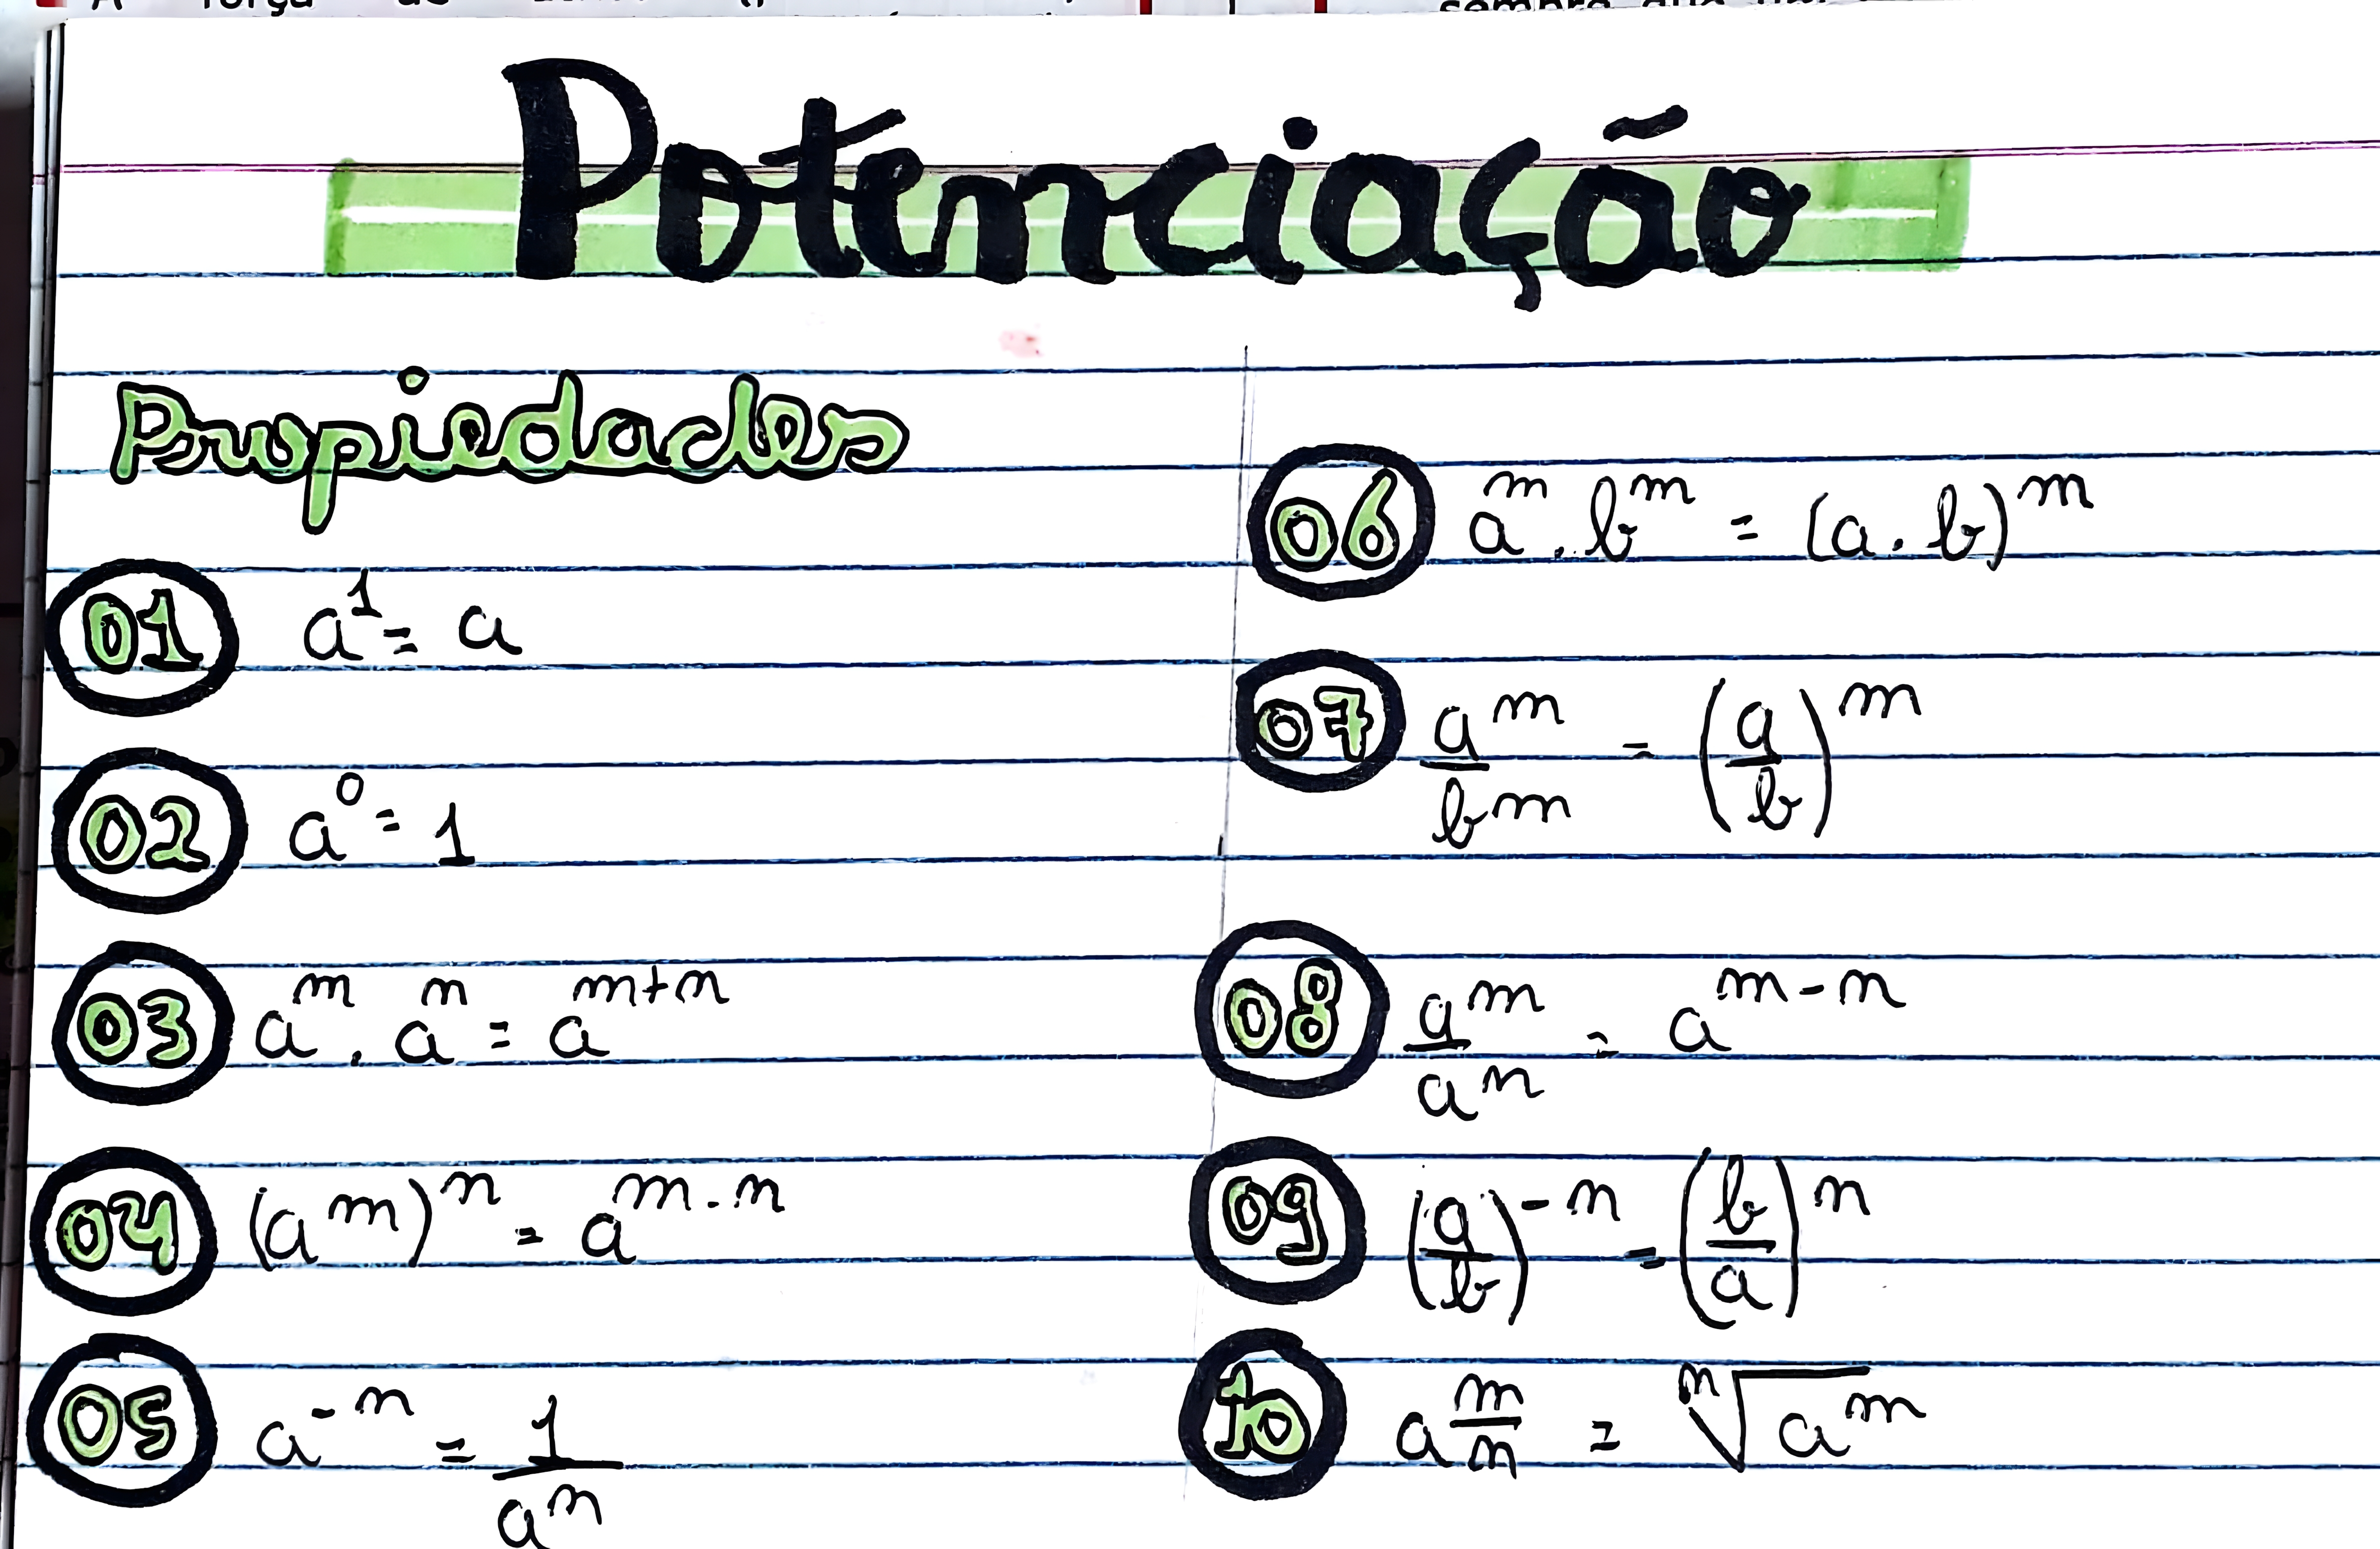 A força de
sempre que um
Potenciação
Propiedades
01 a¹ = a
02 a⁰ = 1
03 aᵐ . aⁿ = aᵐ⁺ⁿ
04 (aᵐ)ⁿ = aᵐ·ⁿ
05 a⁻ⁿ = 1/aⁿ
06 aᵐ . bᵐ = (a . b)ᵐ
07 aᵐ/bᵐ = (a/b)ᵐ
08 aᵐ/aⁿ = aᵐ⁻ⁿ
09 (a/b)⁻ⁿ = (b/a)ⁿ
10 a^(m/n) = ⁿ√aᵐ